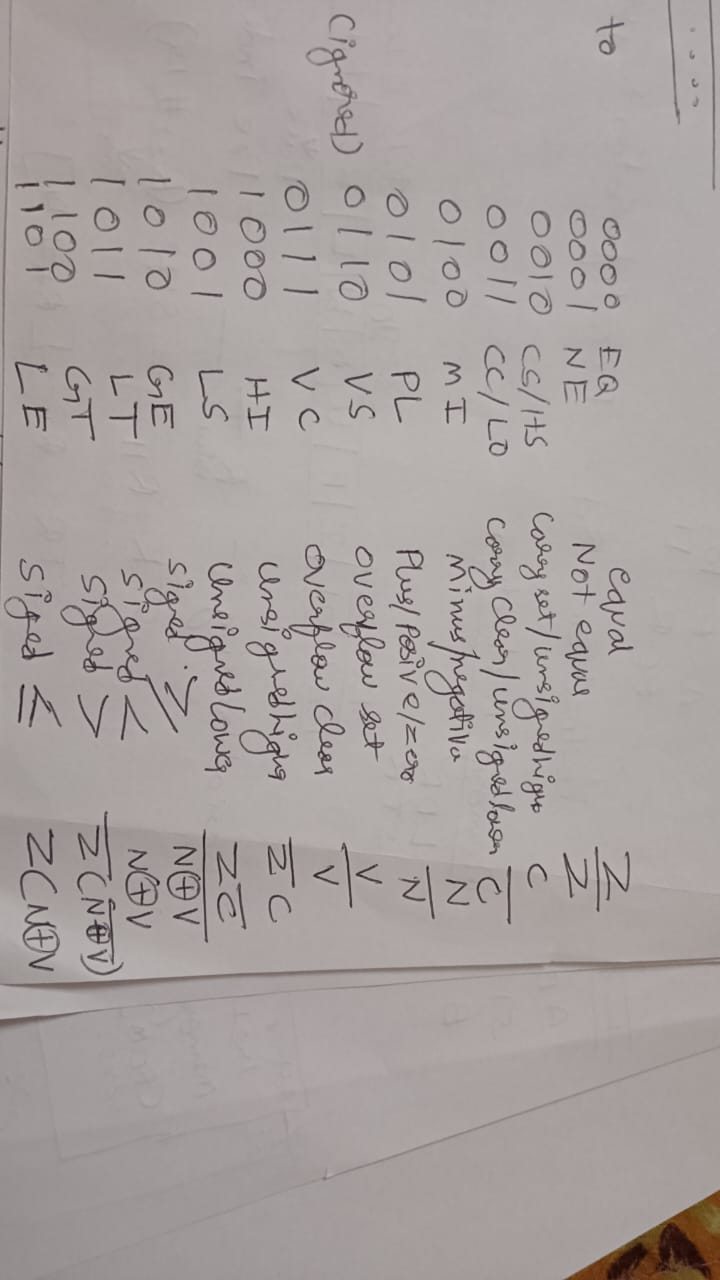 to
0000 EQ equal Z
0001 NE Not equal Z̅
0010 CS/HS Carry set/unsigned high C
0011 CC/LO carry clear/unsigned lower C̅
0100 MI minus/negative N
0101 PL Plus/Posive/zero N̅
(ignored) 0110 VS overflow set V
0111 VC overflow clear V̅
1000 HI unsigned high Z̅ C
1001 LS unsigned lower Z C̅
1010 GE siged ≥ N⊕V
1011 LT signed < N⊕V
1100 GT signed > Z̅(N⊕V)
1101 LE siged ≤ Z(N⊕V